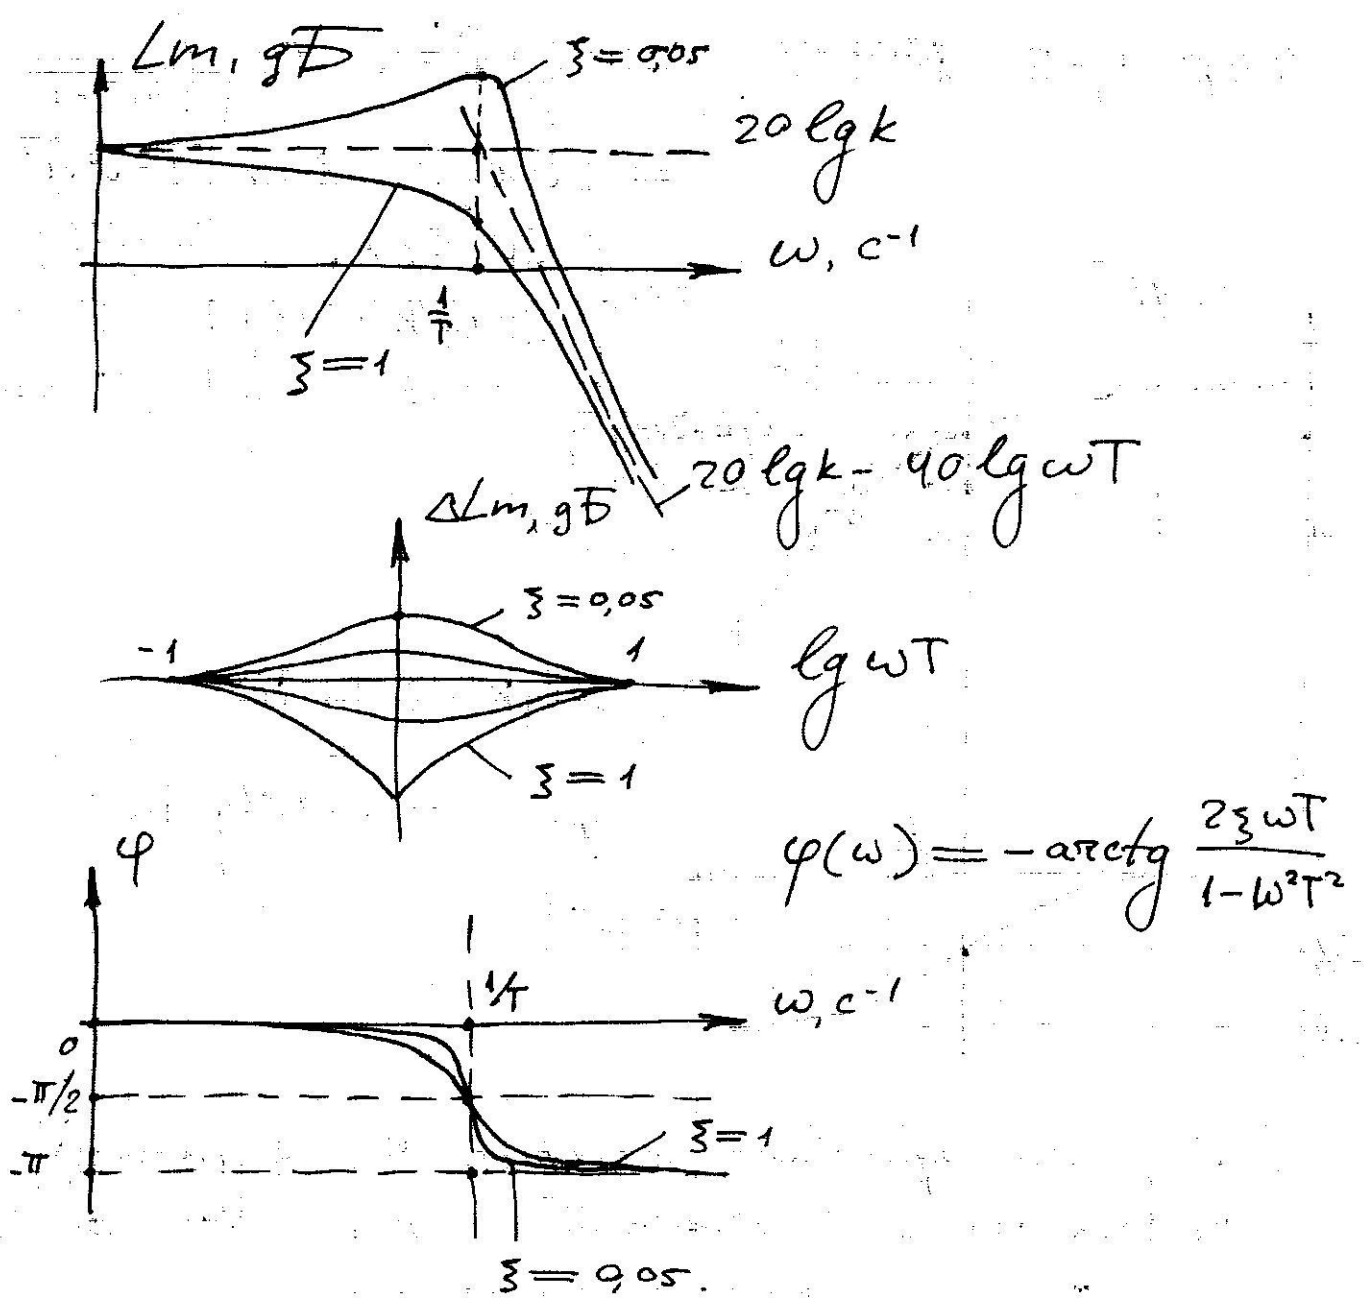 Lm, дБ
ξ = 0,05
20 lg k
ω, c⁻¹
1/T
ξ = 1
20 lg k - 40 lg ωT
ΔLm, дБ
ξ = 0,05
-1
1
lg ωT
ξ = 1
φ
φ(ω) = - arctg 2ξωT / 1 - ω²T²
1/T
ω, c⁻¹
0
-π/2
ξ = 1
-π
ξ = 0,05.